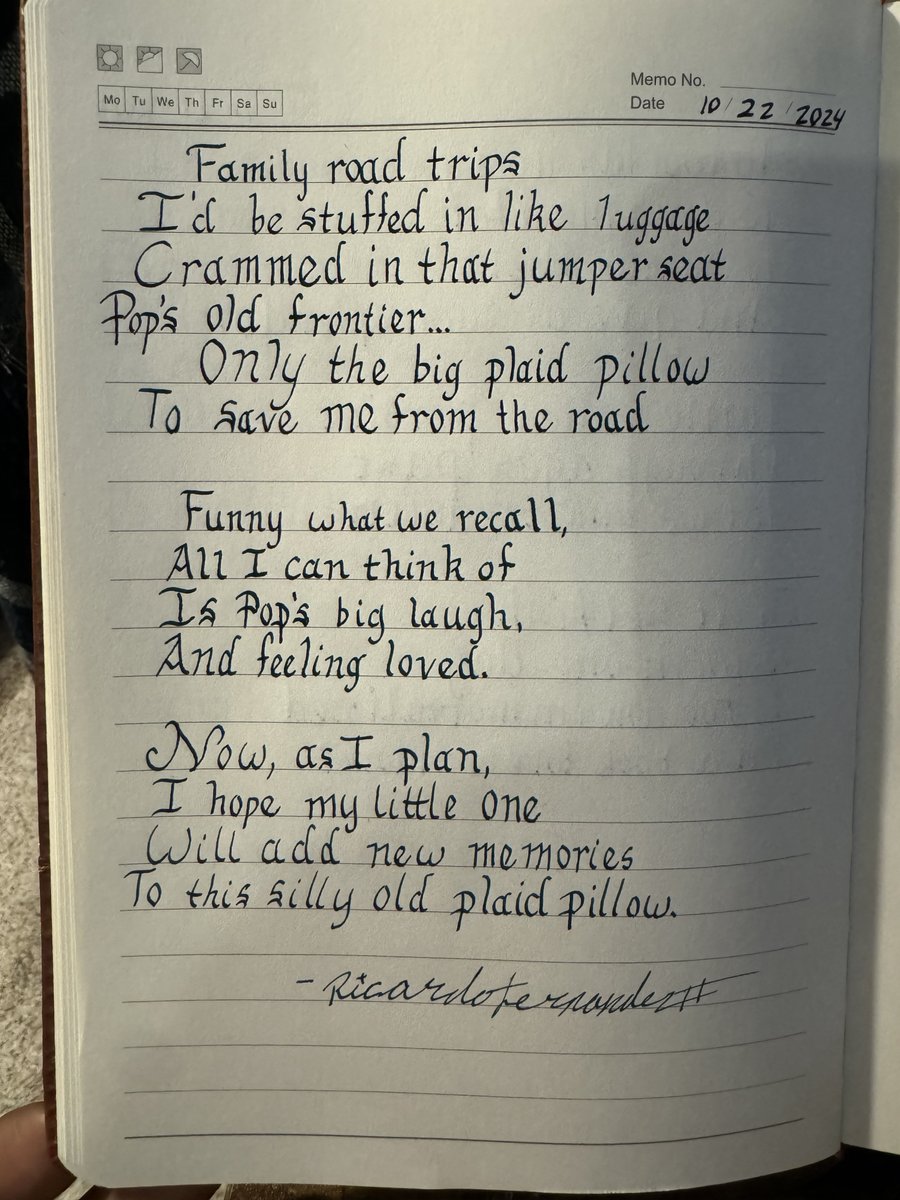 Mo Tu We Th Fr Sa Su
Memo No.
Date 10/22/2024
Family road trips
I'd be stuffed in like luggage
Crammed in that jumper seat
Pop's old frontier...
Only the big plaid pillow
To save me from the road
Funny what we recall,
All I can think of
Is Pop's big laugh,
And feeling loved.
Now, as I plan,
I hope my little one
Will add new memories
To this silly old plaid pillow.
- Ricardo Fernandez II